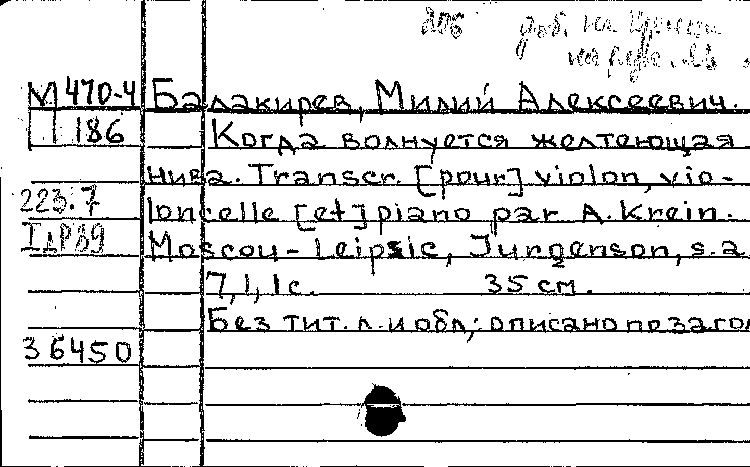 206 доб. на
M 470-4 Балакирев, Милий Алексеевич.
186 Когда волнуется желтеющая
нива. Transcr. [pour] violon, vio-
223.7 loncelle [et] piano par A. Krein.
Moscou-Leipsic, Jurgenson, s.a.
7,1,1 с. 35 см.
Без тит. л. и обл; описано по загол
36450